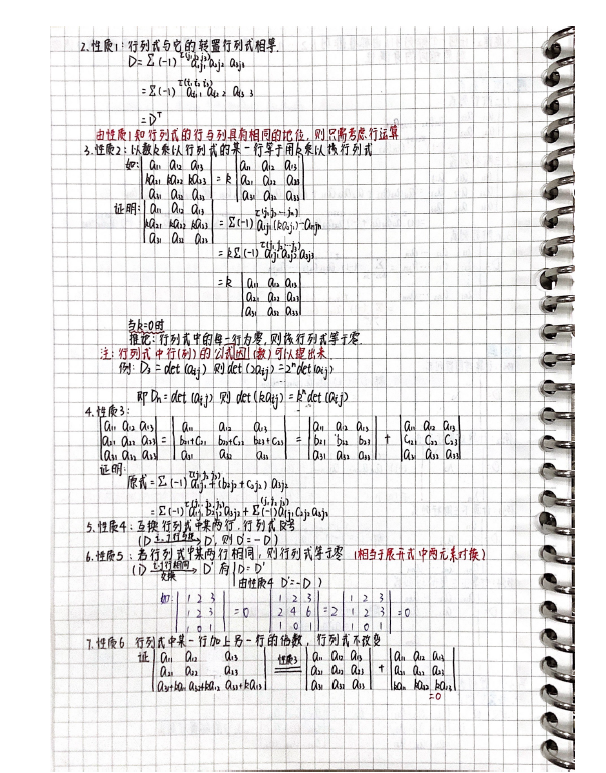 2.性质1:行列式与它的转置行列式相等.
D=Σ(-1)^τ(j₁j₂j₃) a₁j₁ a₂j₂ a₃j₃
=Σ(-1)^τ(i₁ i₂ i₃) aᵢ₁1 aᵢ₂ 2 aᵢ₃ 3
=Dᵀ
由性质1知行列式的行与列具有相同的地位,则只需考虑行运算
3.性质2:以数k乘以行列式的某一行等于用k乘以该行列式
如: | a₁₁ a₁₂ a₁₃ | | a₁₁ a₁₂ a₁₃ |
| ka₂₁ ka₂₂ ka₂₃ | = k | a₂₁ a₂₂ a₂₃ |
| a₃₁ a₃₂ a₃₃ | | a₃₁ a₃₂ a₃₃ |
证明: | a₁₁ a₁₂ a₁₃ |
| ka₂₁ ka₂₂ ka₂₃ | =Σ(-1)^τ(j₁j₂…jₙ) a₁j₁(ka₂j₂)…aₙjₙ
| a₃₁ a₃₂ a₃₃ |
=kΣ(-1) a₁j₁ a₂j₂ a₃j₃
=k | a₁₁ a₁₂ a₁₃ |
| a₂₁ a₂₂ a₂₃ |
| a₃₁ a₃₂ a₃₃ |
当k=0时
推论:行列式中的每一行为零,则该行列式等于零.
注:行列式中行(列)的公式因(数)可以提出来.
例: D₂=det(aᵢⱼ) 则det(2aᵢⱼ)=2ⁿdet(aᵢⱼ)
即Dₙ=det(aᵢⱼ) 则det(kaᵢⱼ)=kⁿdet(aᵢⱼ)
4.性质3:
| a₁₁ a₁₂ a₁₃ | | a₁₁ a₁₂ a₁₃ | | a₁₁ a₁₂ a₁₃ | | a₁₁ a₁₂ a₁₃ |
| a₂₁ a₂₂ a₂₃ | = | b₂₁+c₂₁ b₂₂+c₂₂ b₂₃+c₂₃ | = | b₂₁ b₂₂ b₂₃ | + | c₂₁ c₂₂ c₂₃ |
| a₃₁ a₃₂ a₃₃ | | a₃₁ a₃₂ a₃₃ | | a₃₁ a₃₂ a₃₃ | | a₃₁ a₃₂ a₃₃ |
证明:
原式=Σ(-1)^τ(j₁j₂j₃) a₁j₁+(b₂j₂+c₂j₂)a₃j₂
=Σ(-1) a₁j₁ b₂j₂ a₃j₂+Σ(-1) a₁j₁ c₂j₂ a₃j₃
5.性质4:互换行列式中某两行,行列式反号
(D i,j行互换 D',则D'=-D)
6.性质5:若行列式中某两行相同,则行列式等于零 (相当于展开式中两元素对换)
(D i,j行相同 交换 D' 有 | D=D'
由性质4 D'=-D )
如: | 1 2 3 | | 1 2 3 | | 1 2 3 |
| 1 2 3 | =0 | 2 4 6 | =2 | 1 2 3 | =0
| 1 0 1 | | 1 0 1 | | 1 0 1 |
7.性质6 行列式中某一行加上另一行的倍数,行列式不改变
证 | a₁₁ a₁₂ a₁₃ | 性质3 | a₁₁ a₁₂ a₁₃ | | a₁₁ a₁₂ a₁₃ |
| a₂₁ a₂₂ a₂₃ | = | a₂₁ a₂₂ a₂₃ | + | a₂₁ a₂₂ a₂₃ |
| a₃₁+ka₁₁ a₃₂+ka₁₂ a₃₃+ka₁₃ | | a₃₁ a₃₂ a₃₃ | | ka₁₁ ka₁₂ ka₁₃ |
=0